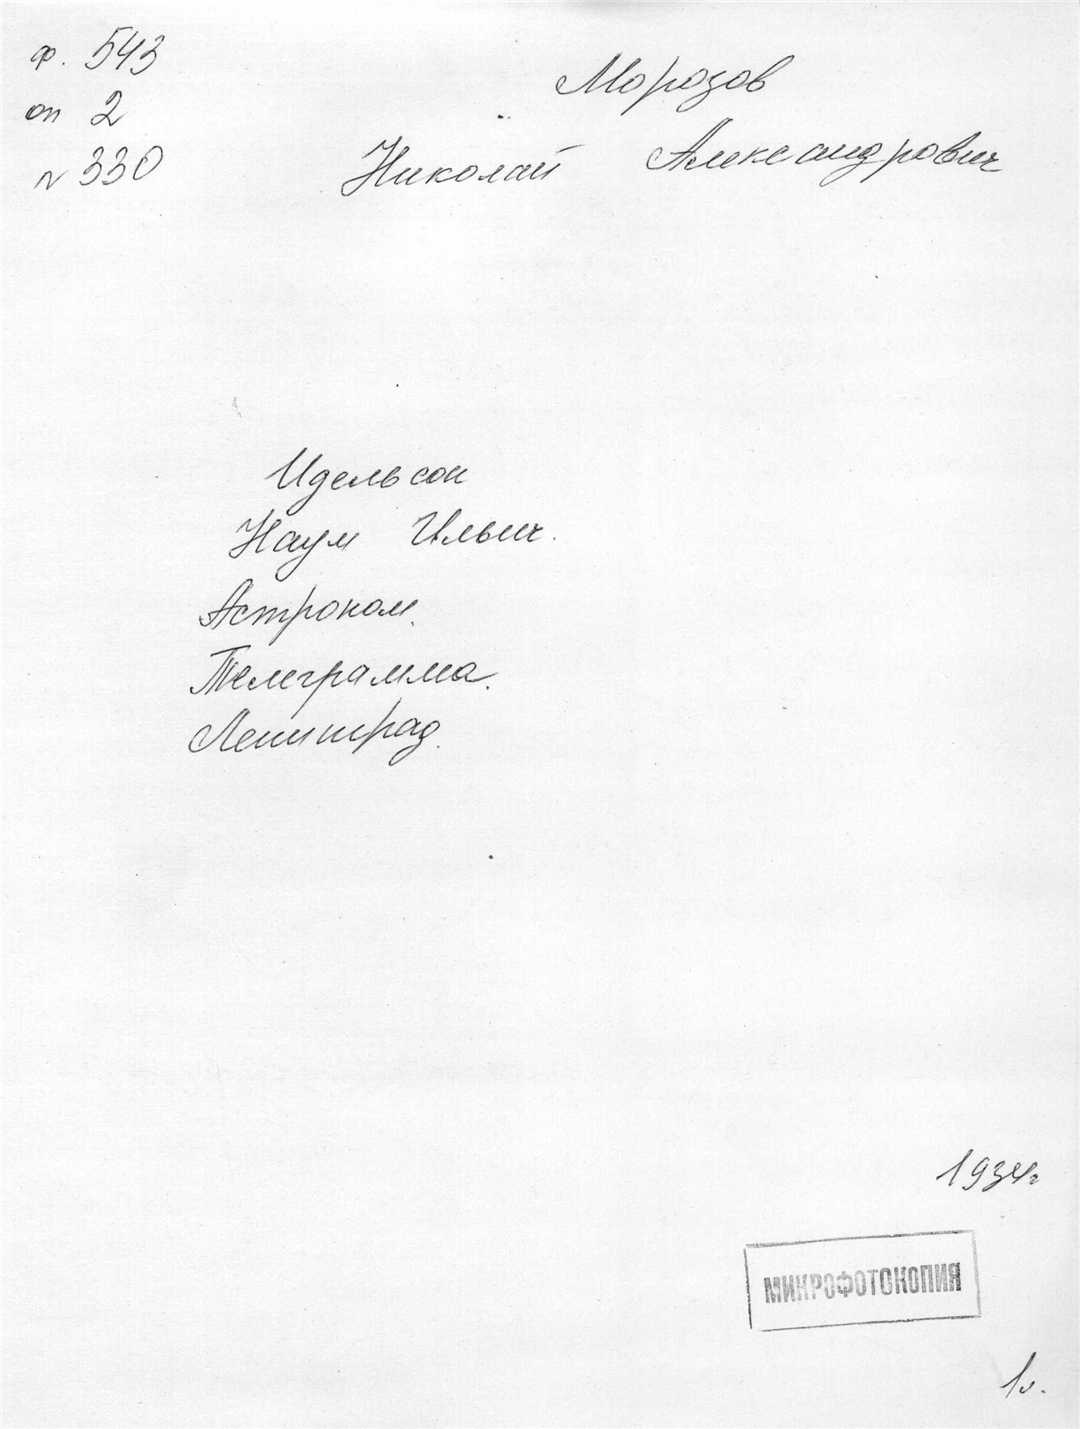 ф. 543
оп 2
№ 330
Морозов
Николай Александрович
Идельсон
Наум Ильич.
Астроном.
Телеграмма.
Ленинград.
1934г
МИКРОФОТОКОПИЯ
1л.